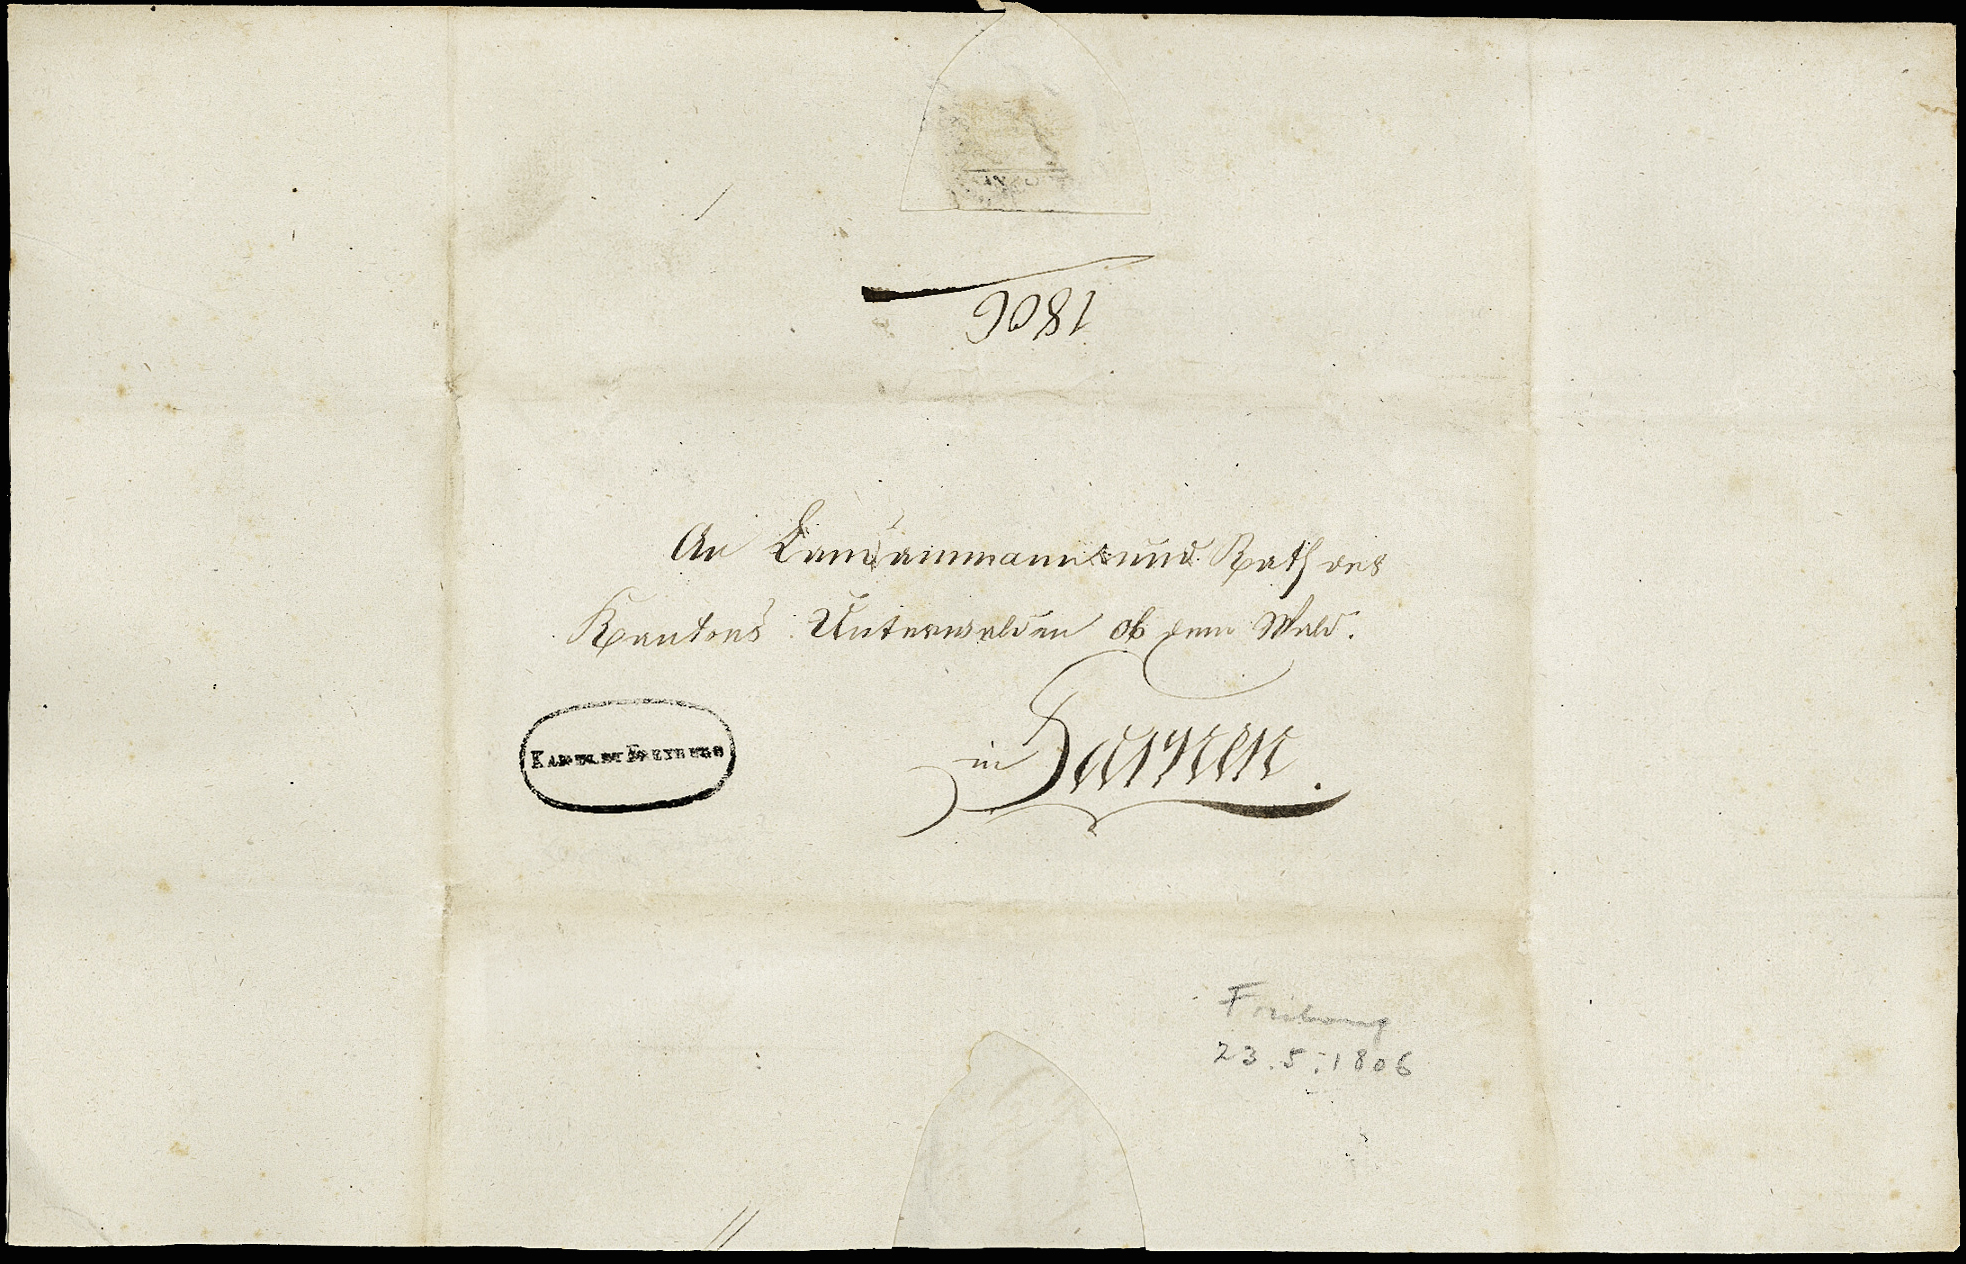 1806
An Landammann und Rath des
Kantons Unterwalden ob dem Wald.
in Sarnen.
FREYBURG
Freiburg
23.5.1806